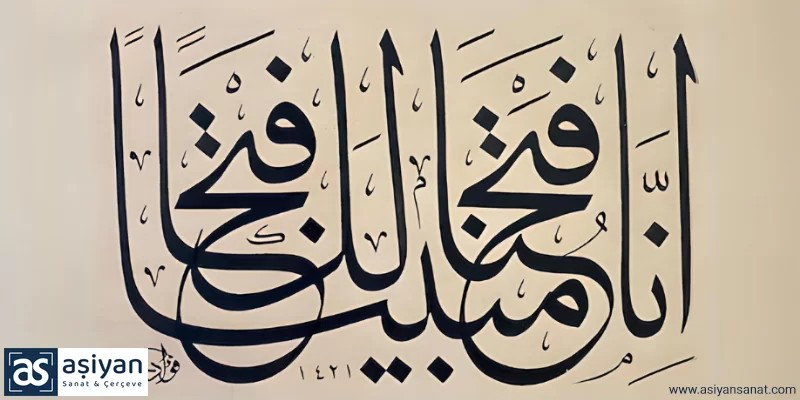 إِنَّا فَتَحْنَا لَكَ فَتْحًا مُبِينًا
١٤٢١
as aşiyan
Sanat & Çerçeve
www.asiyansanat.com